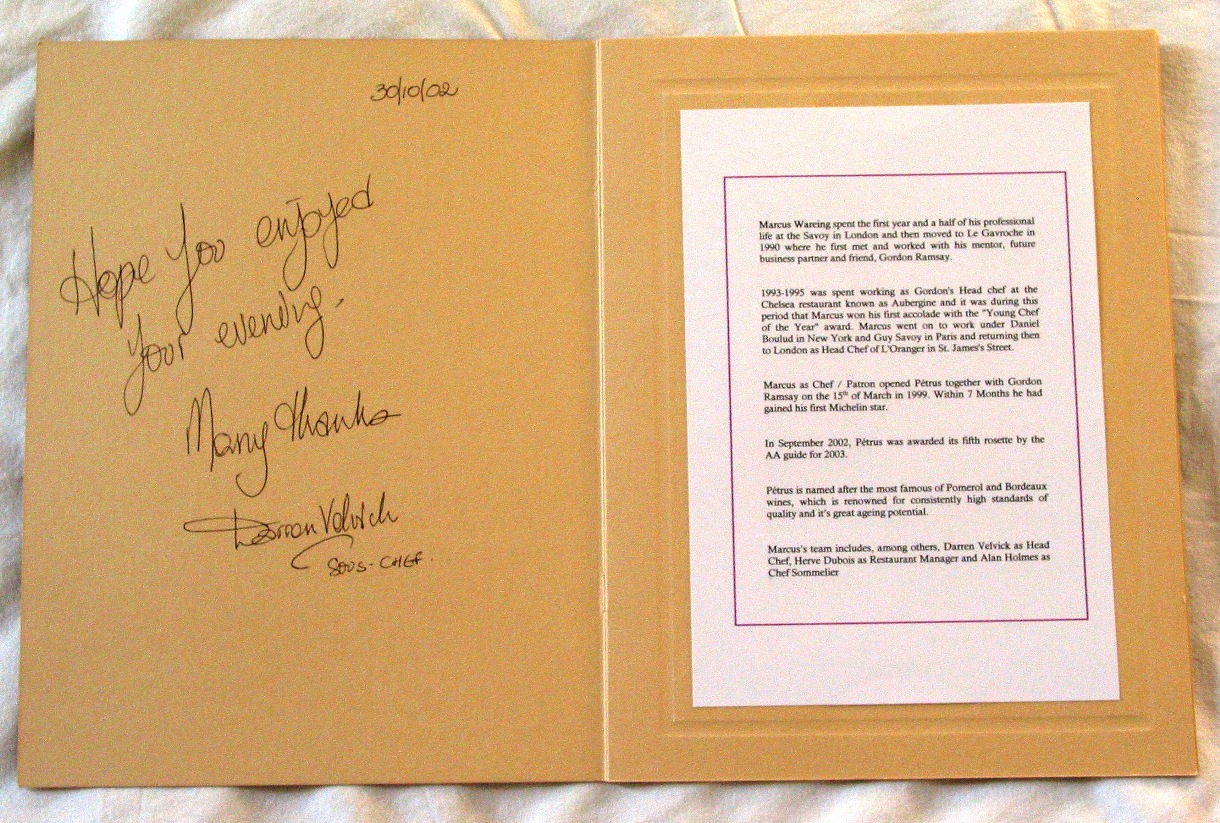 30/10/02
Hope you enjoyed
your evening.
Many thanks
Darren Velvick
SOUS-CHEF.
Marcus Wareing spent the first year and a half of his professional
life at the Savoy in London and then moved to Le Gavroche in
1990 where he first met and worked with his mentor, future
business partner and friend, Gordon Ramsay.
1993-1995 was spent working as Gordon's Head chef at the
Chelsea restaurant known as Aubergine and it was during this
period that Marcus won his first accolade with the "Young Chef
of the Year" award. Marcus went on to work under Daniel
Boulud in New York and Guy Savoy in Paris and returning then
to London as Head Chef of L'Oranger in St. James's Street.
Marcus as Chef / Patron opened Pétrus together with Gordon
Ramsay on the 15th of March in 1999. Within 7 Months he had
gained his first Michelin star.
In September 2002, Pétrus was awarded its fifth rosette by the
AA guide for 2003.
Pétrus is named after the most famous of Pomerol and Bordeaux
wines, which is renowned for consistently high standards of
quality and it's great ageing potential.
Marcus's team includes, among others, Darren Velvick as Head
Chef, Herve Dubois as Restaurant Manager and Alan Holmes as
Chef Sommelier